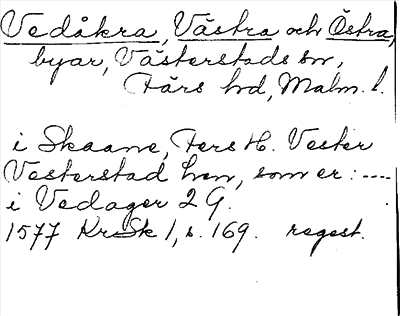 Vedåkra, Västra och Östra,
byar, Västerstads sn,
Färs hd, Malm. l.
i Skaane, Fers H. Vester
Vesterstad hen, som er: ----
i Vedager 2 G.
1577 KrSk 1, s. 169. regest.